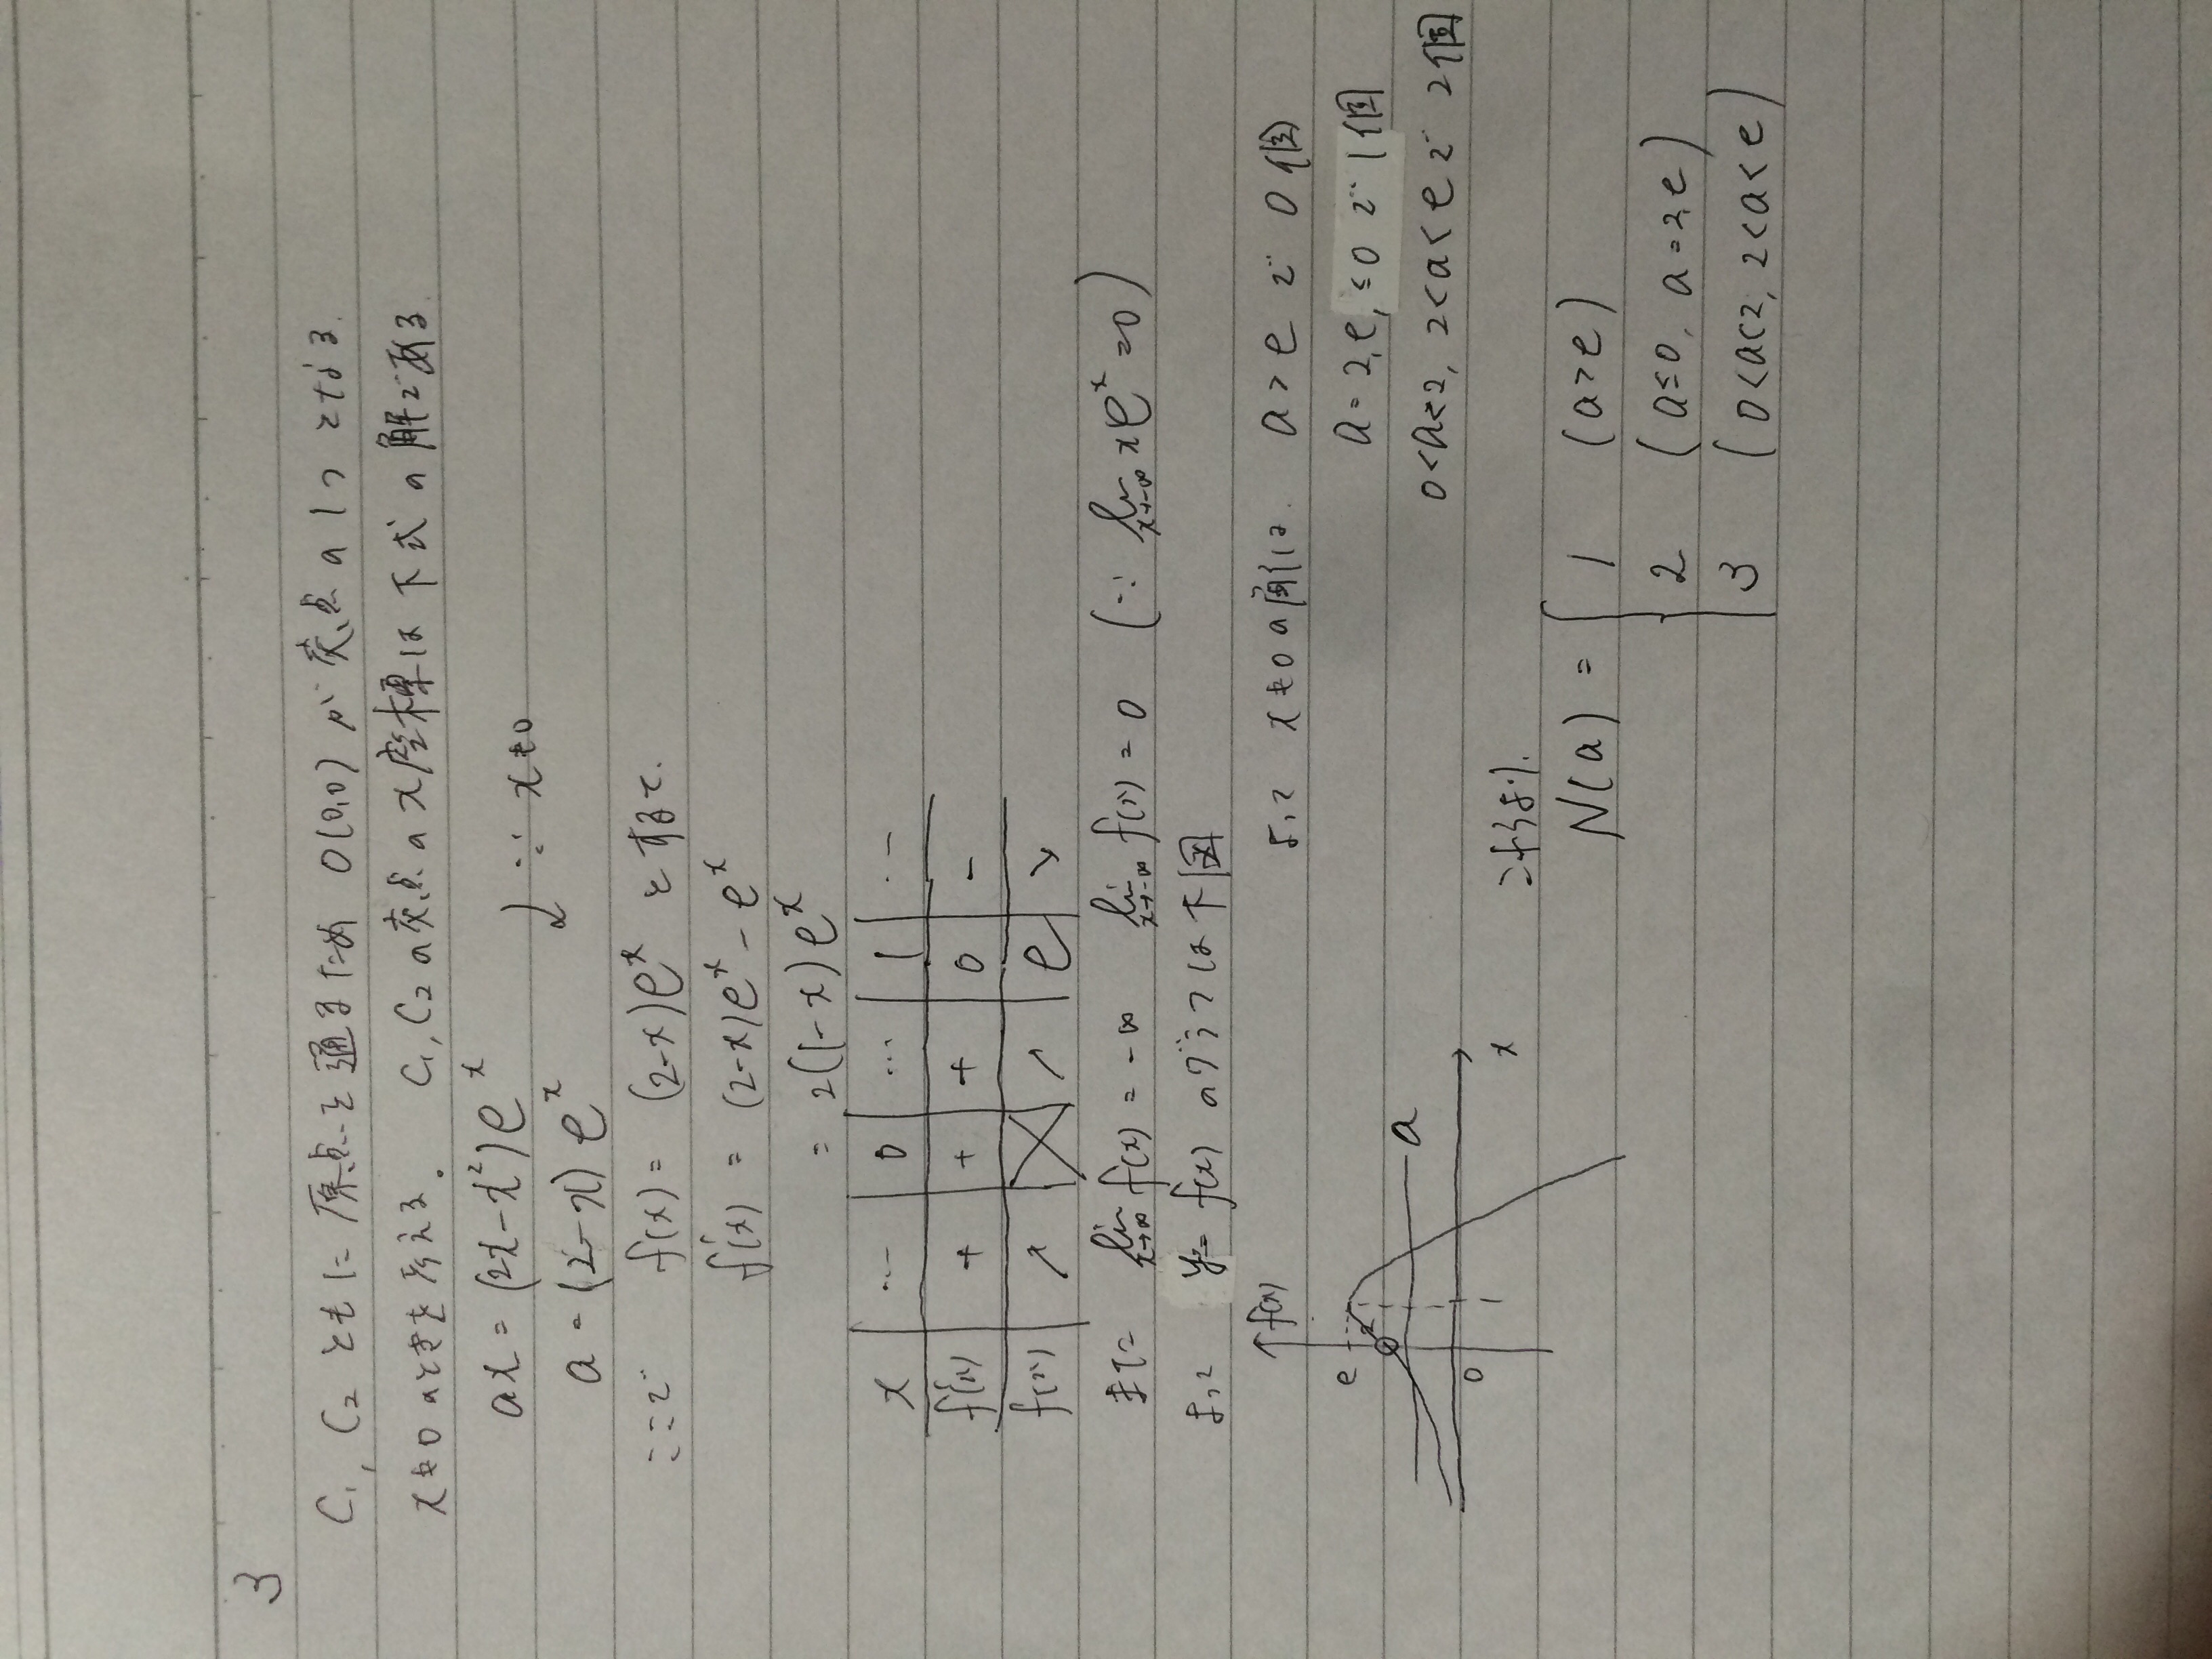 3
C₁, C₂ ともに 原点を通るため O(0,0) が 交点の1つとなる.
x≠0 のときを考える. C₁, C₂の交点の x座標は 下式の解である
ax = (2x-x²)e^x
↓ ∵ x≠0
a = (2-x)e^x
ここで f(x) = (2-x)e^x とすると.
f'(x) = (2-x)e^x - e^x
= 2(1-x)e^x
x ... 0 ... 1 ...
f'(x) + + + 0 -
f(x) ↗ ↗ e ↘
また lim x→∞ f(x) = -∞ lim x→-∞ f(x) = 0 (∵ lim x→-∞ xe^x=0)
よって y= f(x) のグラフは下図
f(x)
e
a
0
x
よって x≠0の解は. a>e で 0個
a=2,e, ≤0 で 1個
0<a<2, 2<a<e で 2個
これらより.
N(a) = { 1 (a>e)
2 (a≤0, a=2,e)
3 (0<a<2, 2<a<e)